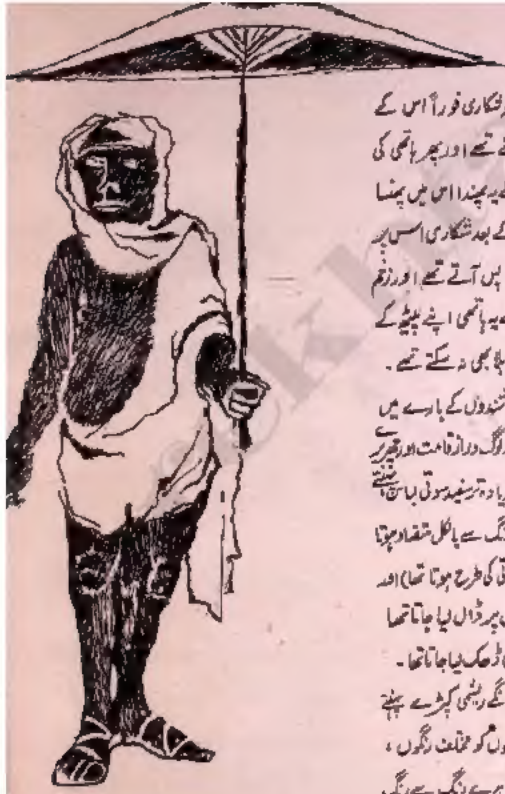 شکاری فوراً اس کے
تھے اور پھر ہاتھی کی
یہ پھندا اس میں پھنسا
کے بعد شکاری اس پر
پس آتے تھے اور زخم
یہ ہاتھی اپنے پیٹھ کے
ہلا بھی نہ سکتے تھے ۔
باشندوں کے بارے میں
لوگ دراز قامت اور چھریرے
زیادہ تر سفید سوتی لباس پہنتے
رنگ سے بالکل متضاد ہوتا
کی طرح ہوتا تھا) اور
پر ڈال لیا جاتا تھا
ڈھک لیا جاتا تھا ۔
رنگے ریشمی کپڑے پہنتے
کو مختلف رنگوں ،
ہرے رنگ سے رنگ